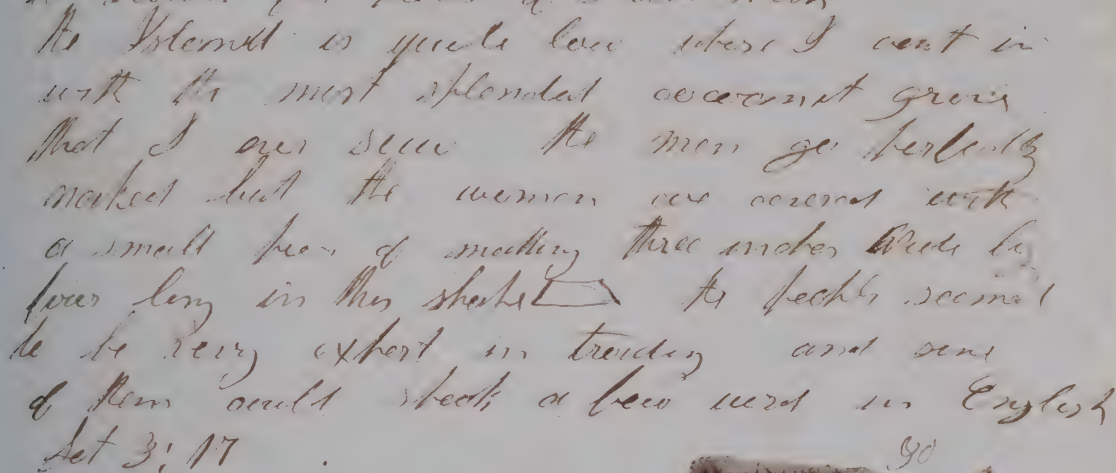 the Island is quite low where I went in
with the most splended cocoanut grove
that I ever seen the men go perfectly
naked but the women are covered with
a small peec of matting three inches wide by
four long in this shape the people seemed
to be very expert in trading and some
of them could speak a few word in English
Lat 3; 17